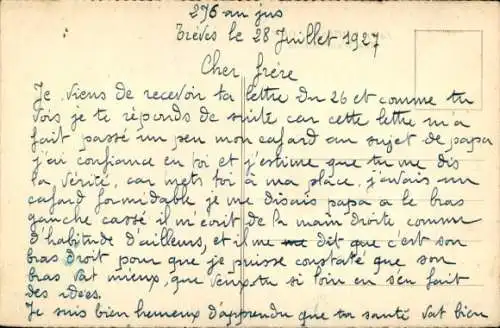 276 au jus
Trèves le 28 Juillet 1927
Cher frère
Je viens de recevoir ta lettre du 26 et comme tu
vois je te réponds de suite car cette lettre m'a
fait passé un peu mon cafard au sujet de papa
j'ai confiance en toi et j'estime que tu me dis
la vérité, car mets toi à ma place, j'avais un
cafard formidable je me disais papa a le bras
gauche cassé il m'écrit de la main droite comme
d'habitude d'ailleurs, et il me me dit que c'est son
bras droit pour que je puisse constaté que son
bras vat mieux, que veux-tu si loin en s'en fait
des idées.
Je suis bien heureux d'apprendre que ta santé vat bien